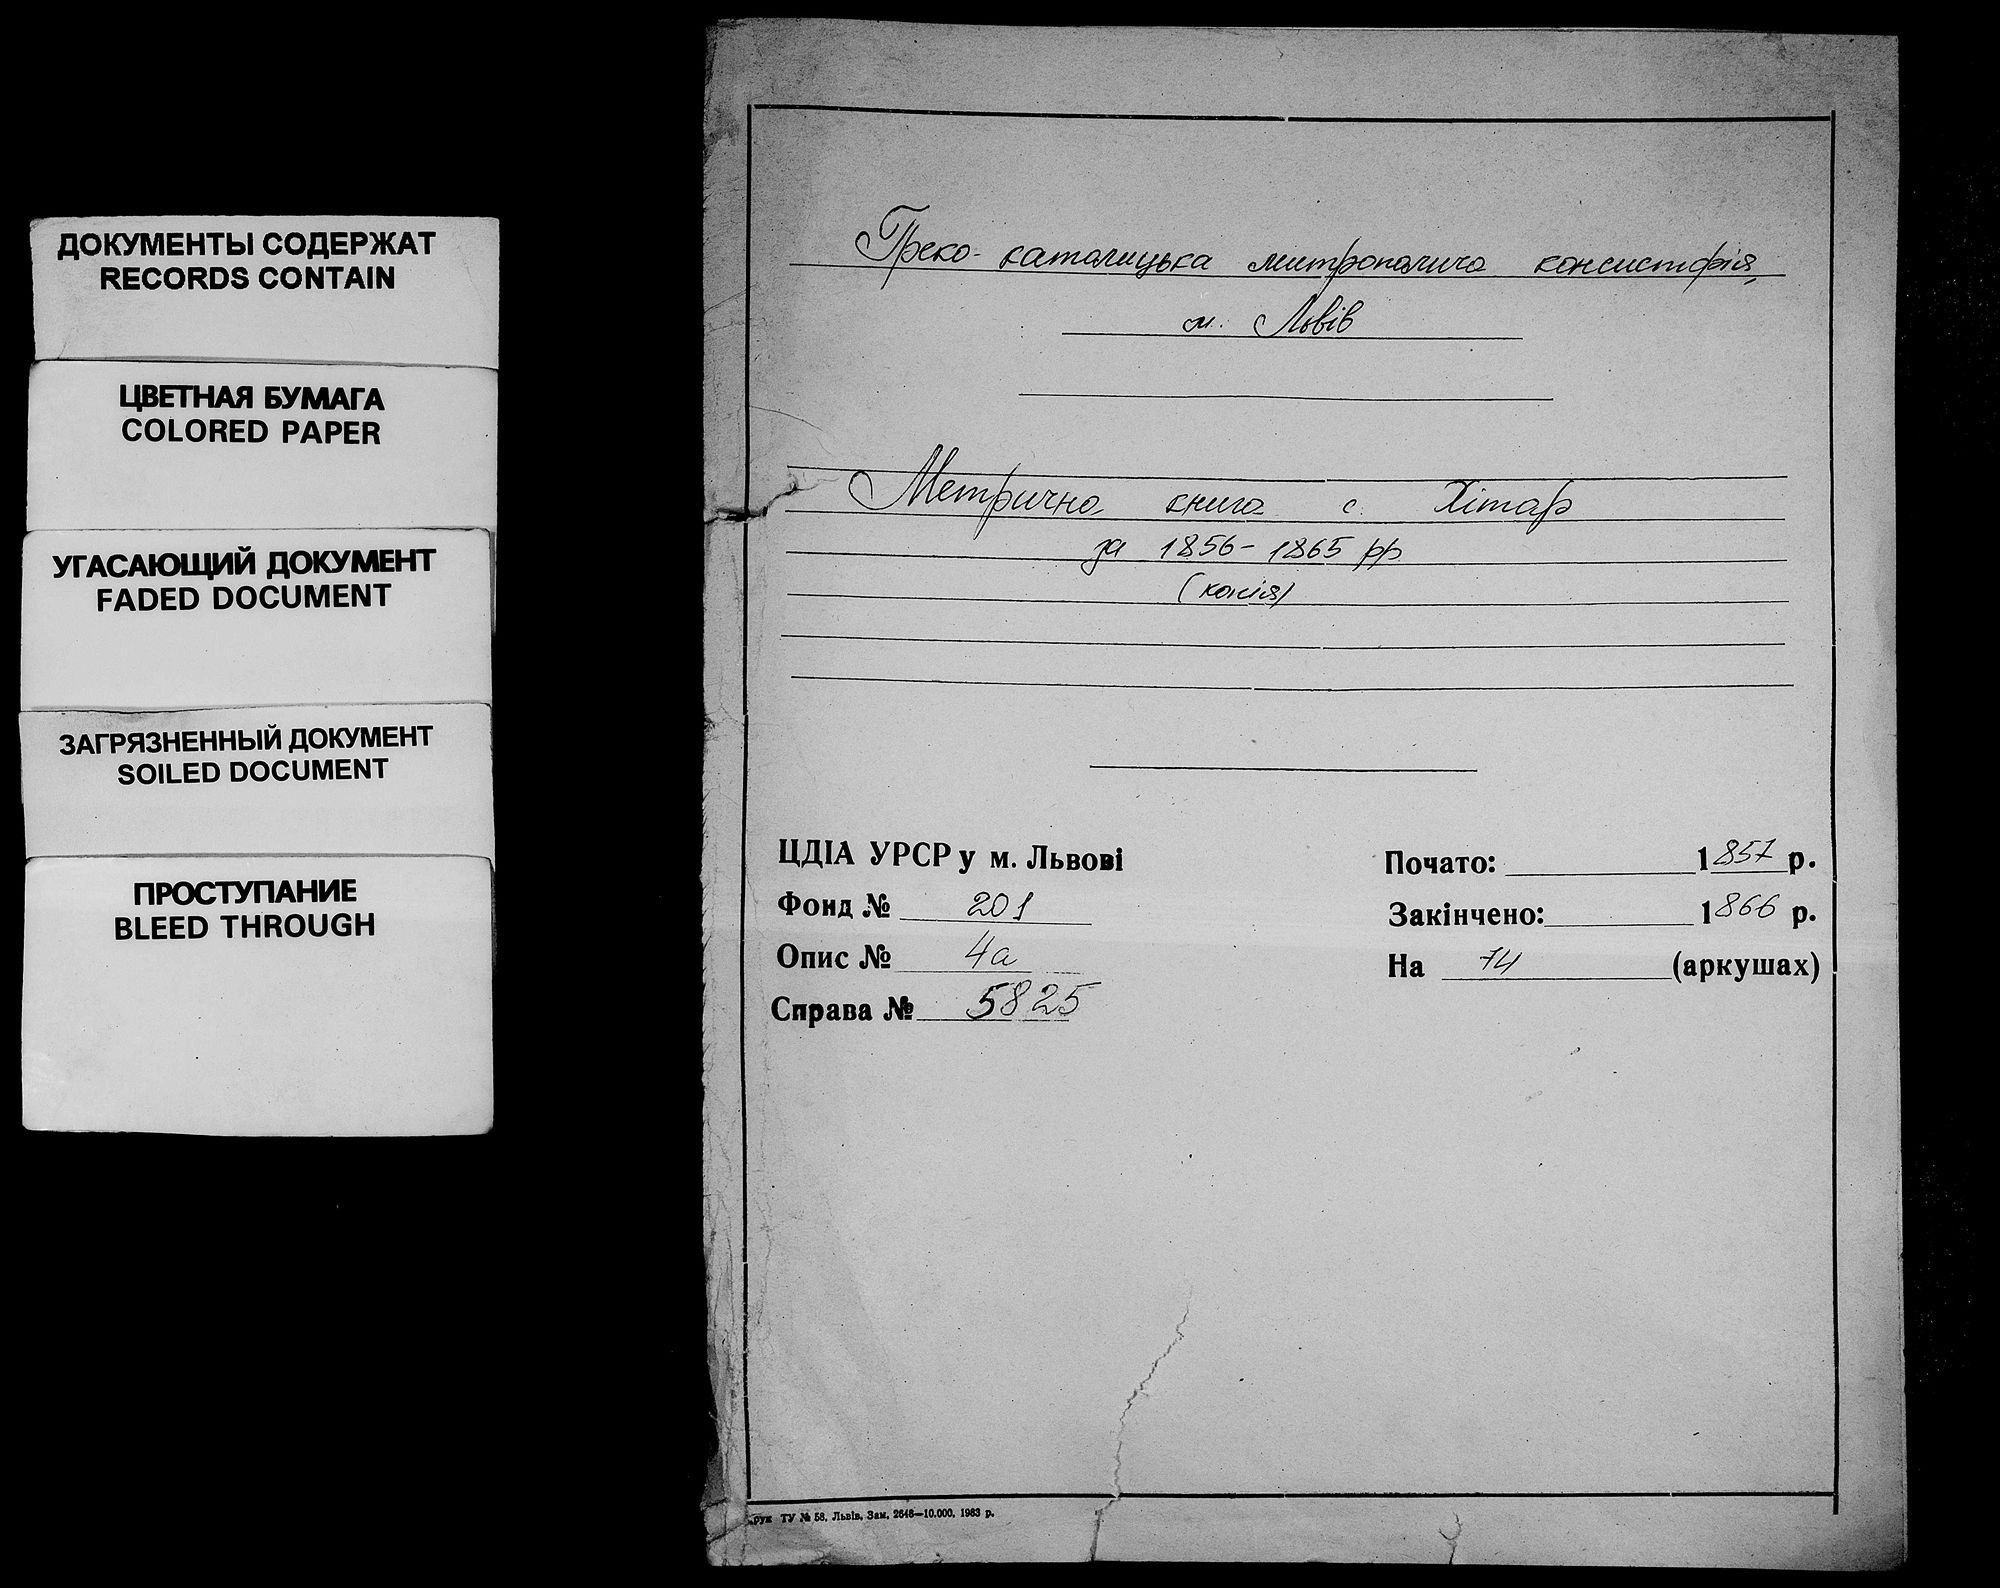 ДОКУМЕНТЫ СОДЕРЖАТ
RECORDS CONTAIN
ЦВЕТНАЯ БУМАГА
COLORED PAPER
УГАСАЮЩИЙ ДОКУМЕНТ
FADED DOCUMENT
ЗАГРЯЗНЕННЫЙ ДОКУМЕНТ
SOILED DOCUMENT
ПРОСТУПАНИЕ
BLEED THROUGH
Греко-католицька митрополича консисторія,
м. Львів
Метрична книга с. Хітар
за 1856-1865 рр.
(копія)
ЦДІА УРСР у м. Львові
Фонд № 201
Опис № 4а
Справа № 5825
Почато: 1857 р.
Закінчено: 1866 р.
На 74 (аркушах)
рук ТУ № 58, Львів, Зам. 2648—10.000. 1983 р.